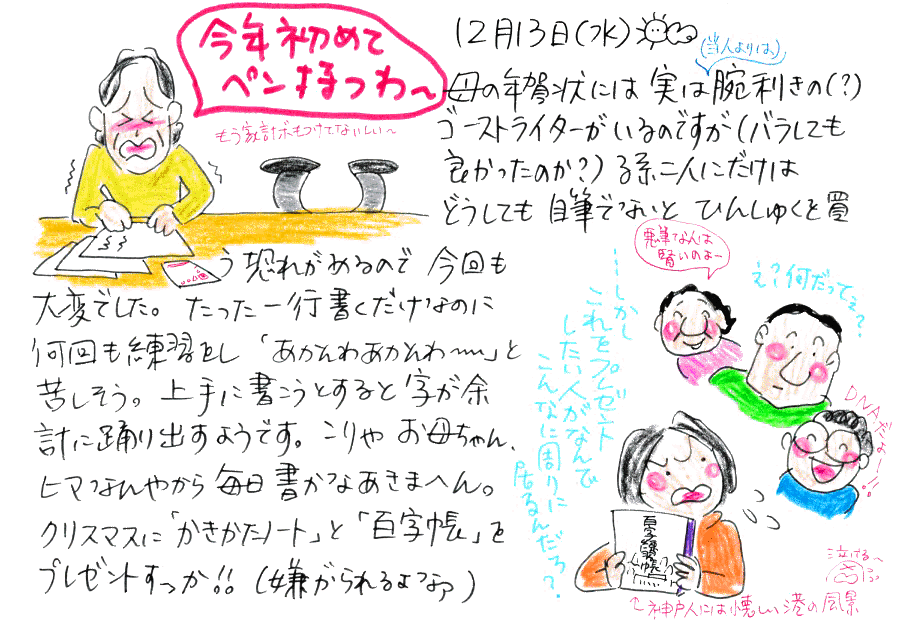 今年初めて
ペン持つわ〜
もう家計ボもつけてないしい〜
12月13日(水)
(当人よりは)
母の年賀状には 実は腕利きの(?)
ゴーストライターがいるのですが(バラしても
良かったのか?)孫二人にだけは
どうしても 自筆でないと ひんしゅくを買
う恐れがあるので 今回も
大変でした。たった一行書くだけなのに
何回も練習をし「あかんわあかんわ〜」と
苦しそう。上手に書こうとすると字が余
計に踊り出すようです。こりゃ お母ちゃん、
ヒマなんやから 毎日 書かなあきまへん。
クリスマスに「かきかたノート」と「百字帳」を
プレゼントすっか!!(嫌がられるよなァ)
悪筆なんは
賢いのよー
え?何だってぇ?
DNAだよー!!
……しかし
これをプレゼント
したい人がなんで
こんなに周りに
居るんだろ?
泣ける〜
↑神戸人には懐しい港の風景